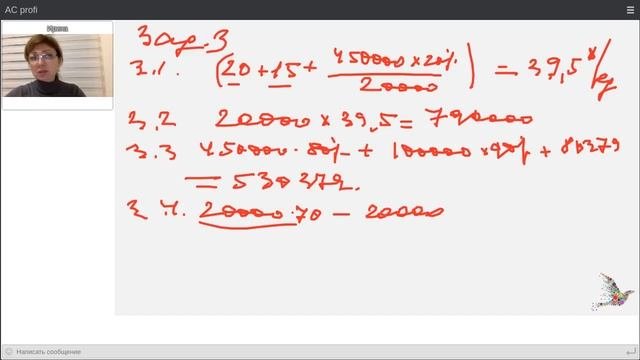 AC profi
Ирина
Зад.3
3.1. (20+15+ 450000×20% / 20000) = 39,5 %/ед
3.2 20000×39,5=790000
3.3 450000·80%+100000×90%+80379
=530379.
3.4. 20000·70-20000
Написать сообщение